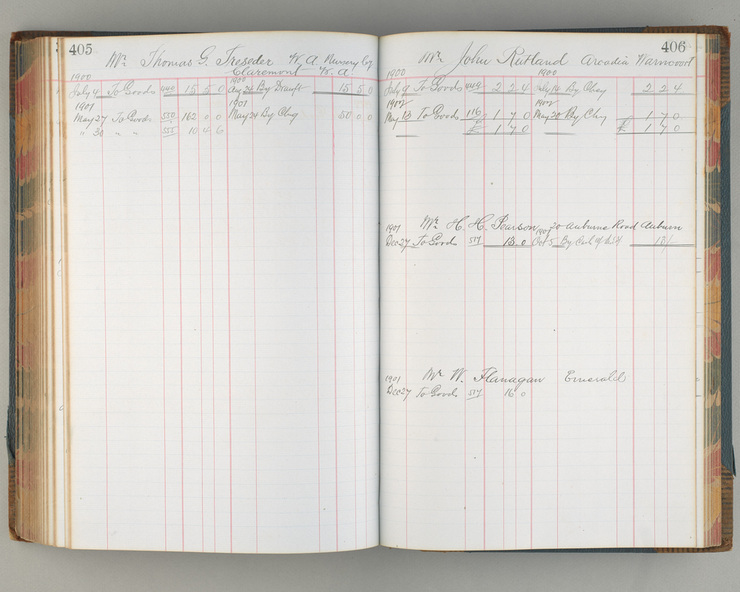 405
Mr. Thomas G. Treseder W. A Nursery Coy
Claremont W. A.
1900 1900
July 4 To Goods 440 15 5 0 Aug 24 By Draft 15 5 0
1901 1901
May 27 To Goods 550 162 0 0 May 24 By Chq 50 0 0
" 30 " " 555 10 4 6
406
Mr. John Rutland Arcadia Warncoort
1900 1900
July 9 To Goods 2 2 4 July 14 By Chq 2 2 4
1902 1902
May 13 To Goods 116 1 7 0 May 20 By Chq 1 7 0
£ 1 7 0 £ 1 7 0
1901 Mr. H. H. Pearson 20 Auburn Road Auburn
Dec 27 To Goods 517 18 0 Oct 5 By 18/-
1901 Mr. W. Flanagan Emerald
Dec 27 To Goods 517 16 0